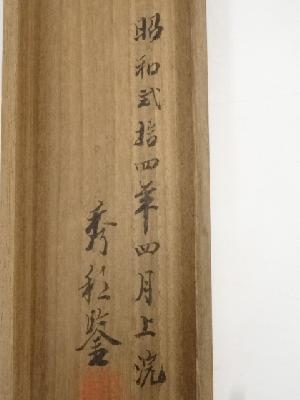 昭和弐拾四年四月上浣
秀穂鑒